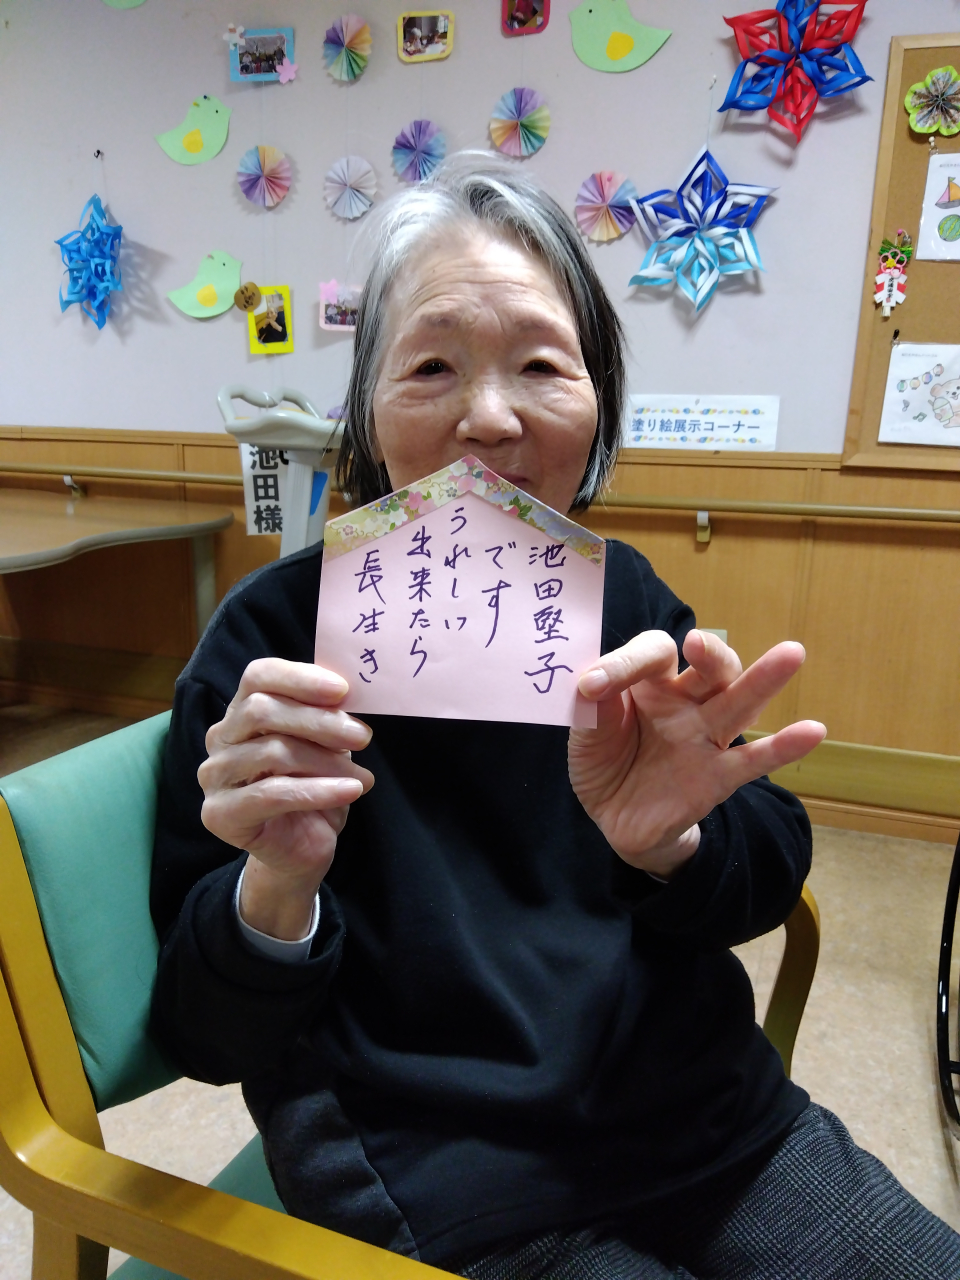 長生き
出来たら
うれしい
です
池田堅子
池田様
塗り絵展示コーナー